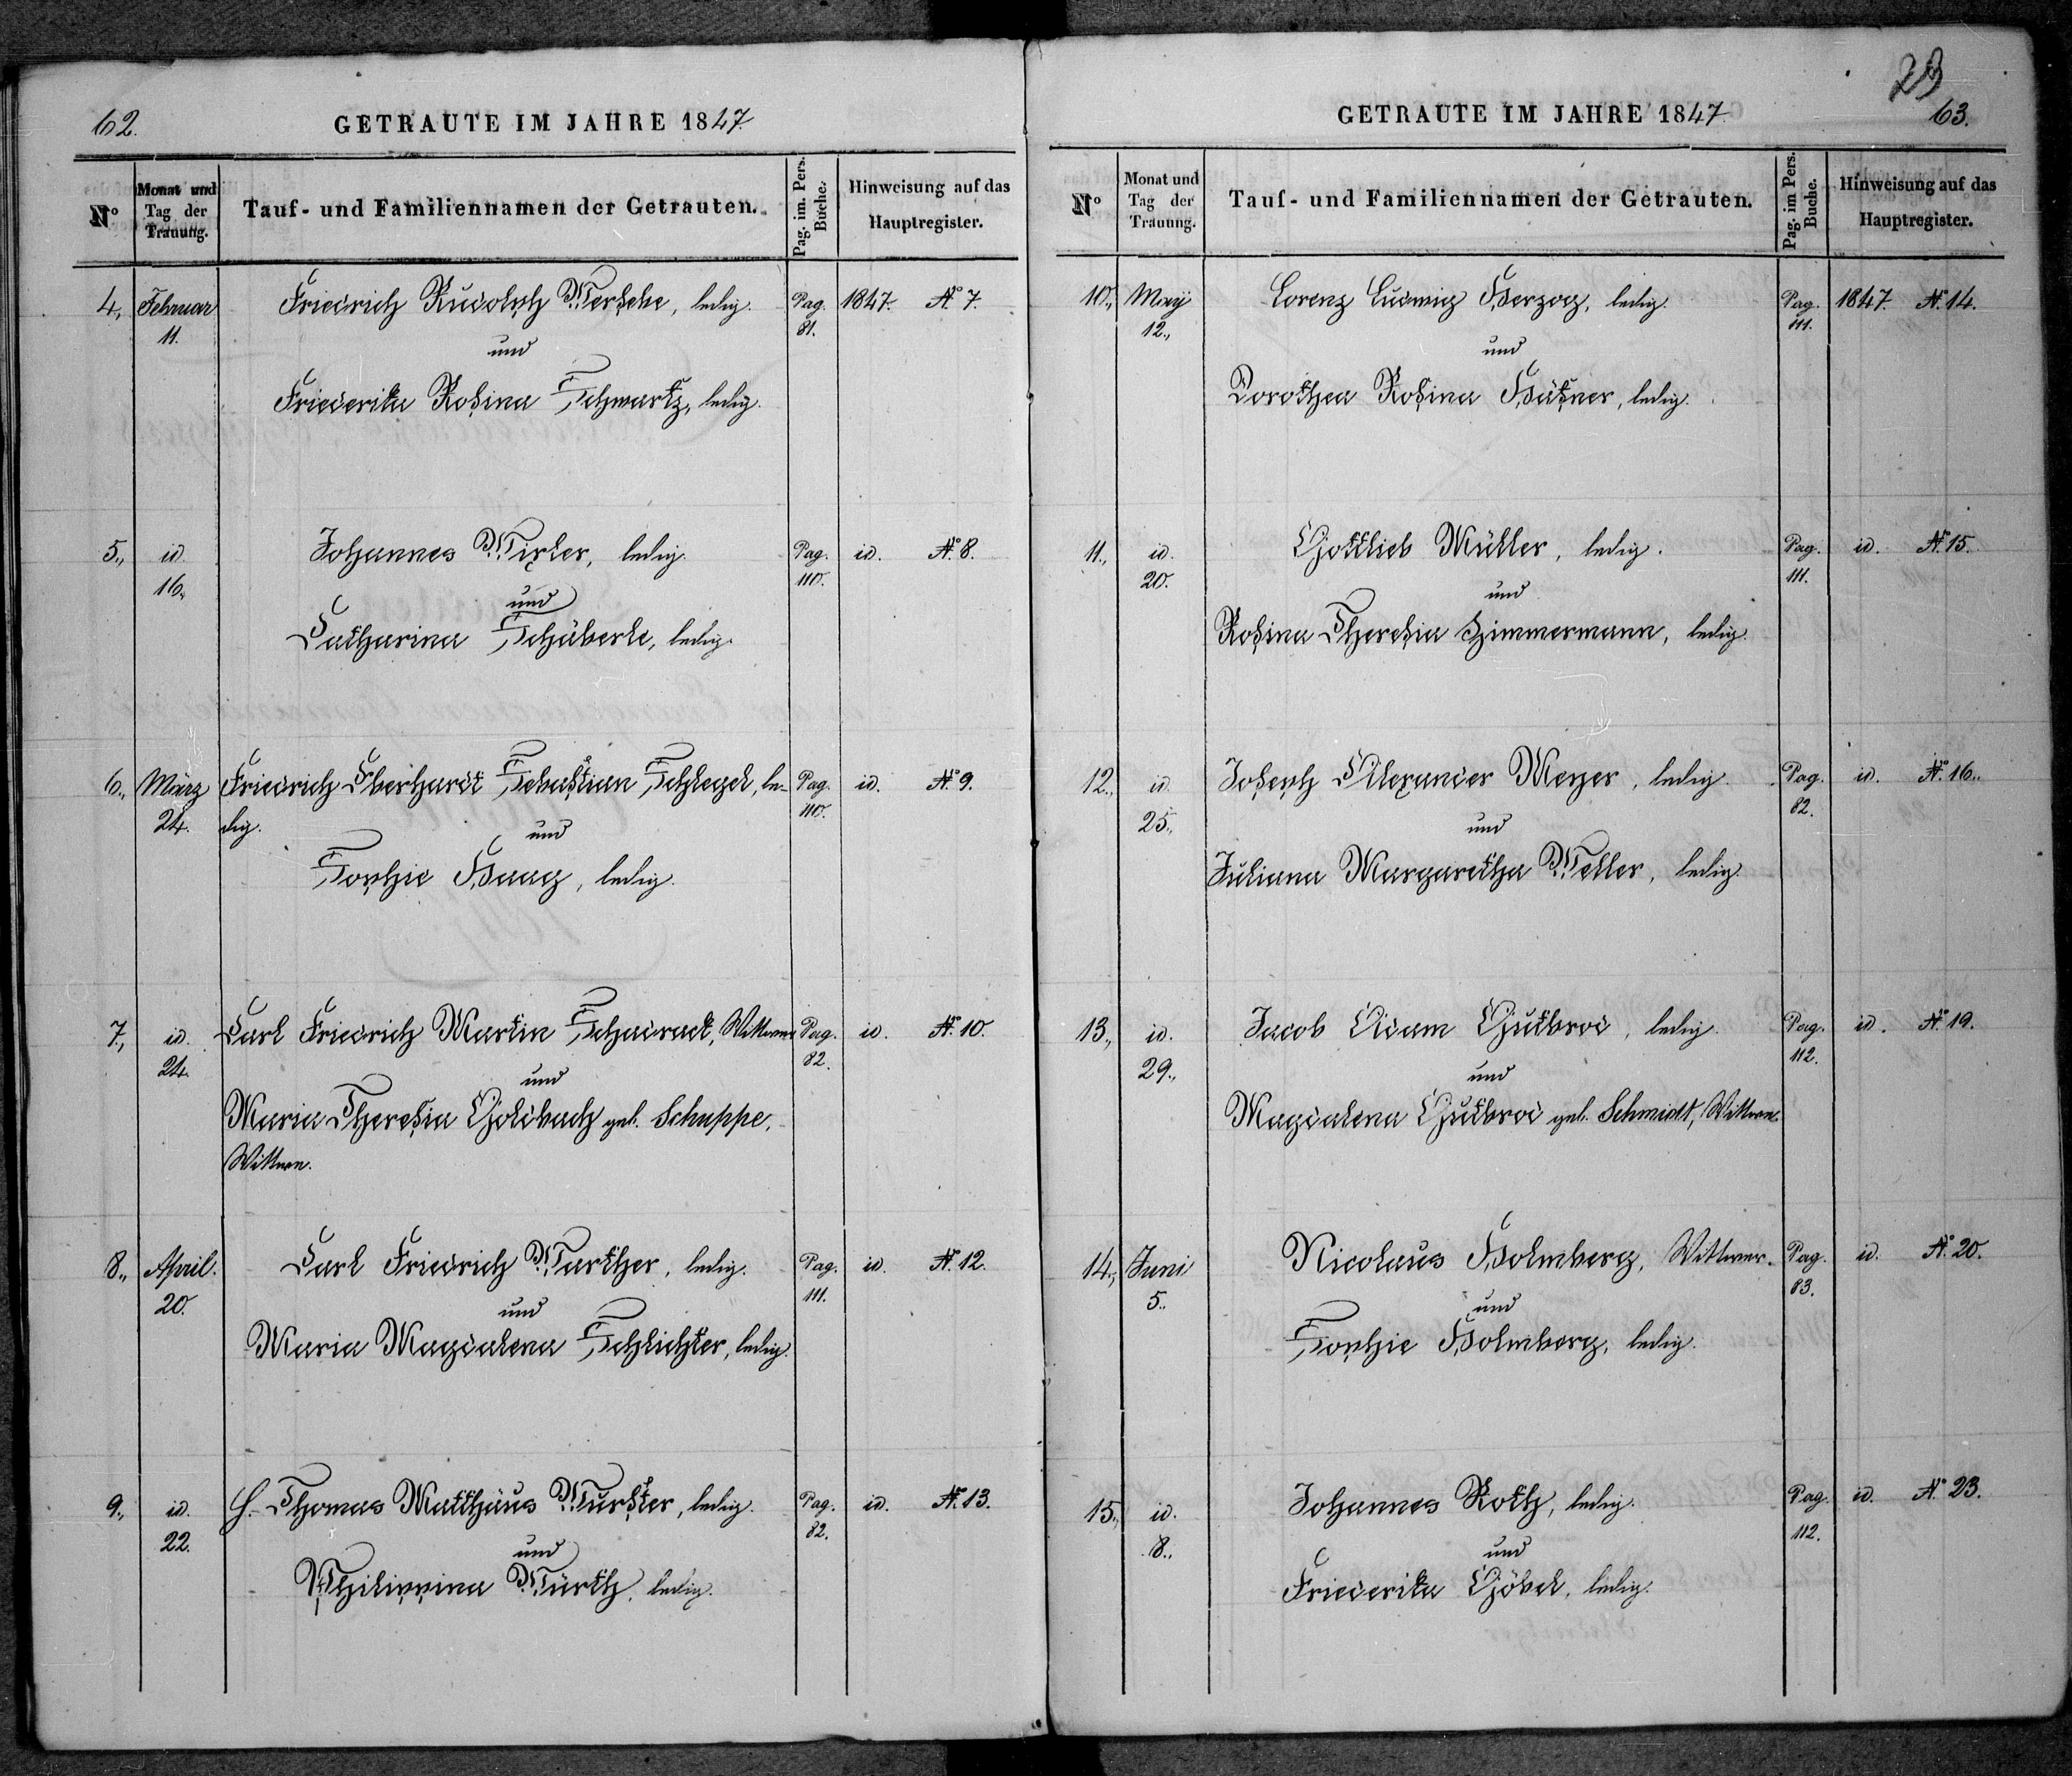 62.
GETRAUTE IM JAHRE 1847.
No
Monat und Tag der Trauung.
Tauf- und Familiennamen der Getrauten.
Pag. im Pers. Buche.
Hinweisung auf das Hauptregister.
4., Februar Friedrich Rudolph Wersche, ledig. Pag. 1847. No 7.
11. und 81.
Friederika Rosina Schwartz, ledig.
5., id. Johannes Wixler, ledig. Pag. id. No 8.
16. und 110.
Catharina Schäberle, ledig.
6., März Friedrich Eberhardt Sebastian Schlegel, le- Pag. id. No 9.
24. dig. und 110.
Sophie Haag, ledig.
7., id. Carl Friedrich Martin Schadradt, Wittwer Pag. id. No 10.
24. und 82.
Maria Theresia Goldbach geb. Schuppe,
Wittwe.
8., April. Carl Friedrich Warther, ledig. Pag. id. No 12.
20. und 111.
Maria Magdalena Schlichter, ledig.
9., id. Thomas Matthäus Wurster, ledig. Pag. id. No 13.
22. und 82.
Philippina Würth, ledig.
23
GETRAUTE IM JAHRE 1847. 63.
No
Monat und Tag der Trauung.
Tauf- und Familiennamen der Getrauten.
Pag. im Pers. Buche.
Hinweisung auf das Hauptregister.
10., May Lorenz Ludwig Herzog, ledig. Pag. 1847. No 14.
12., und 111.
Dorothea Rosina Hätsner, ledig.
11., id. Gottlieb Müller, ledig. Pag. id. No 15.
20. und 111.
Rosina Theresia Zimmermann, ledig.
12., id. Joseph Alexander Meyer, ledig. Pag. id. No 16.
25., und 82.
Juliana Margaretha Weller, ledig.
13., id. Jacob Adam Gutbrod, ledig. Pag. id. No 19.
29., und 112.
Magdalena Gutbrod geb. Schmidt, Wittwe.
14., Juni Nicolaus Holmberg, Wittwer. Pag. id. No 20.
5., und 83.
Sophie Holmberg, ledig.
15., id. Johannes Roth, ledig. Pag. id. No 23.
8., und 112.
Friederika Göbel, ledig.